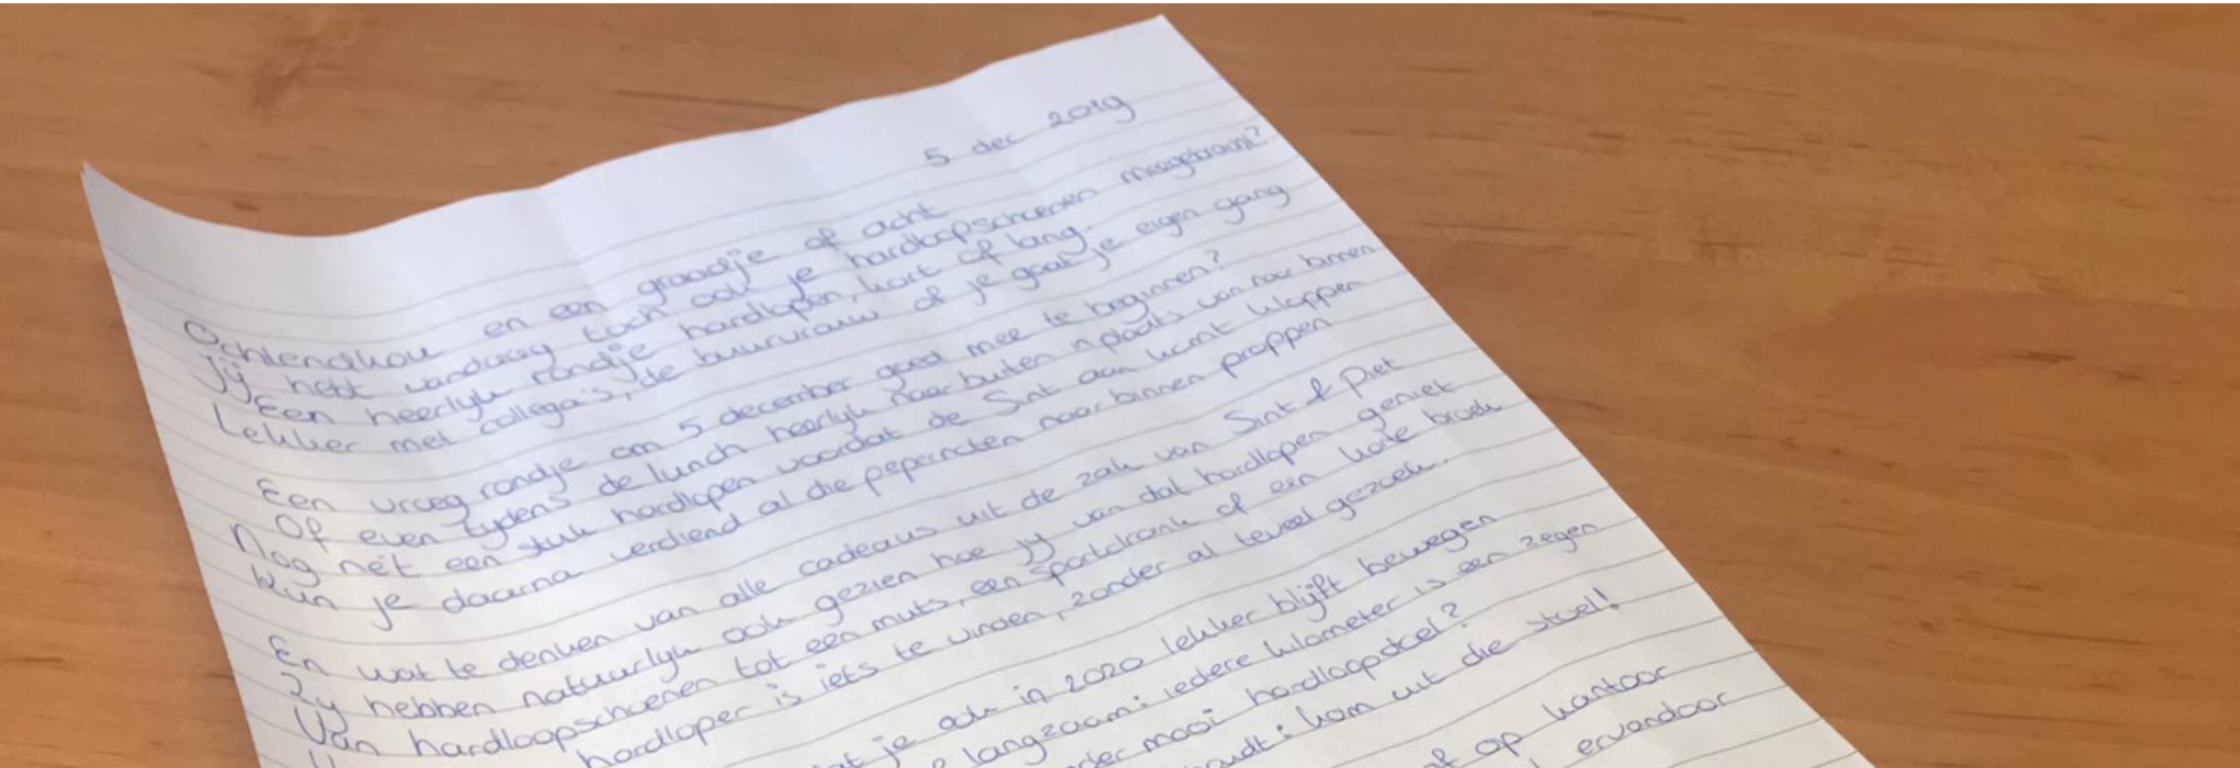 5 dec 2019
Ochtendkou en een graadje of acht
Jij hebt vandaag toch ook je hardloopschoenen meegebracht?
Een heerlijk rondje hardlopen, kort of lang.
Lekker met collega's, de buurvrouw of je gaat je eigen gang
Een vroeg rondje om 5 december goed mee te beginnen?
Of even tijdens de lunch heerlijk naar buiten in plaats van naar binnen
Nog nét een stuk hardlopen voordat de Sint aan komt kloppen
Kun je daarna verdiend al die pepernoten naar binnen proppen
En wat te denken van alle cadeaus uit de zak van Sint & Piet
Zij hebben natuurlijk ook gezien hoe jij van dat hardlopen geniet
Van hardloopschoenen tot een muts, een sportdrank of een korte broek
hardloper is iets te vinden, zonder al teveel gezoek.
je ook in 2020 lekker blijft bewegen
langzaam: iedere kilometer is een zegen
mooi hardloopdoel?
kom uit die stoel!
op kantoor
ervandoor